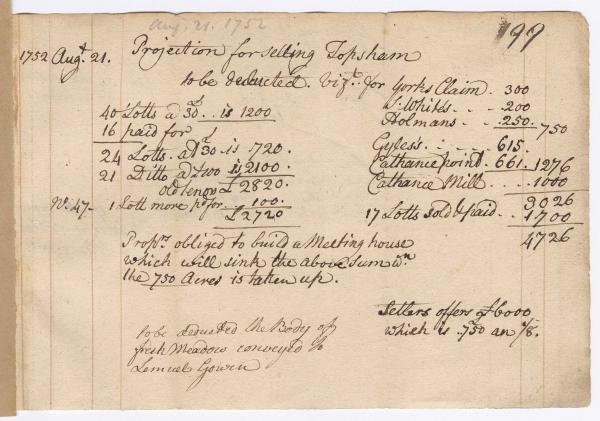 Aug. 21. 1752
199
1752 Augt. 21. Projection for selling Topsham
to be deducted Vizt. for Yorks Claim. 300
S. Whites . . . 200
Holmans . . . 250. 750
40 Lotts a 30. is 1200
16 paid for
24 Lotts. at 30 is 720.
21 Ditto a is 2100.
old tenor £2820.
No. 47 - 1 Lott more pd. for. 100.
£2720
Gyless . . . 615.
Cathance point. 661. 1276
Cathance Mill . . . 1000
3026
17 Lotts sold & paid . . 1700
4726
Proprs. obliged to build a Meeting house
which will sink the above Sum wn
the 750 Acres is taken up.
Settlers offers £6000
which is 750 an 1/8.
to be deducted the Body of
fresh Meadow conveyed to
Lemuel Gowen